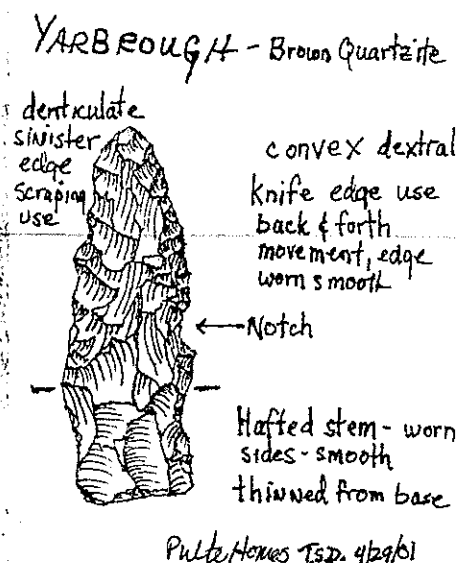 YARBROUGH - Brown Quartzite
denticulate
sinister
edge
Scraping
use
convex dextral
knife edge use
back & forth
movement, edge
worn smooth
Notch
Hafted stem - worn
sides - smooth
thinned from base
Pulte Homes T.S.D. 4/29/01